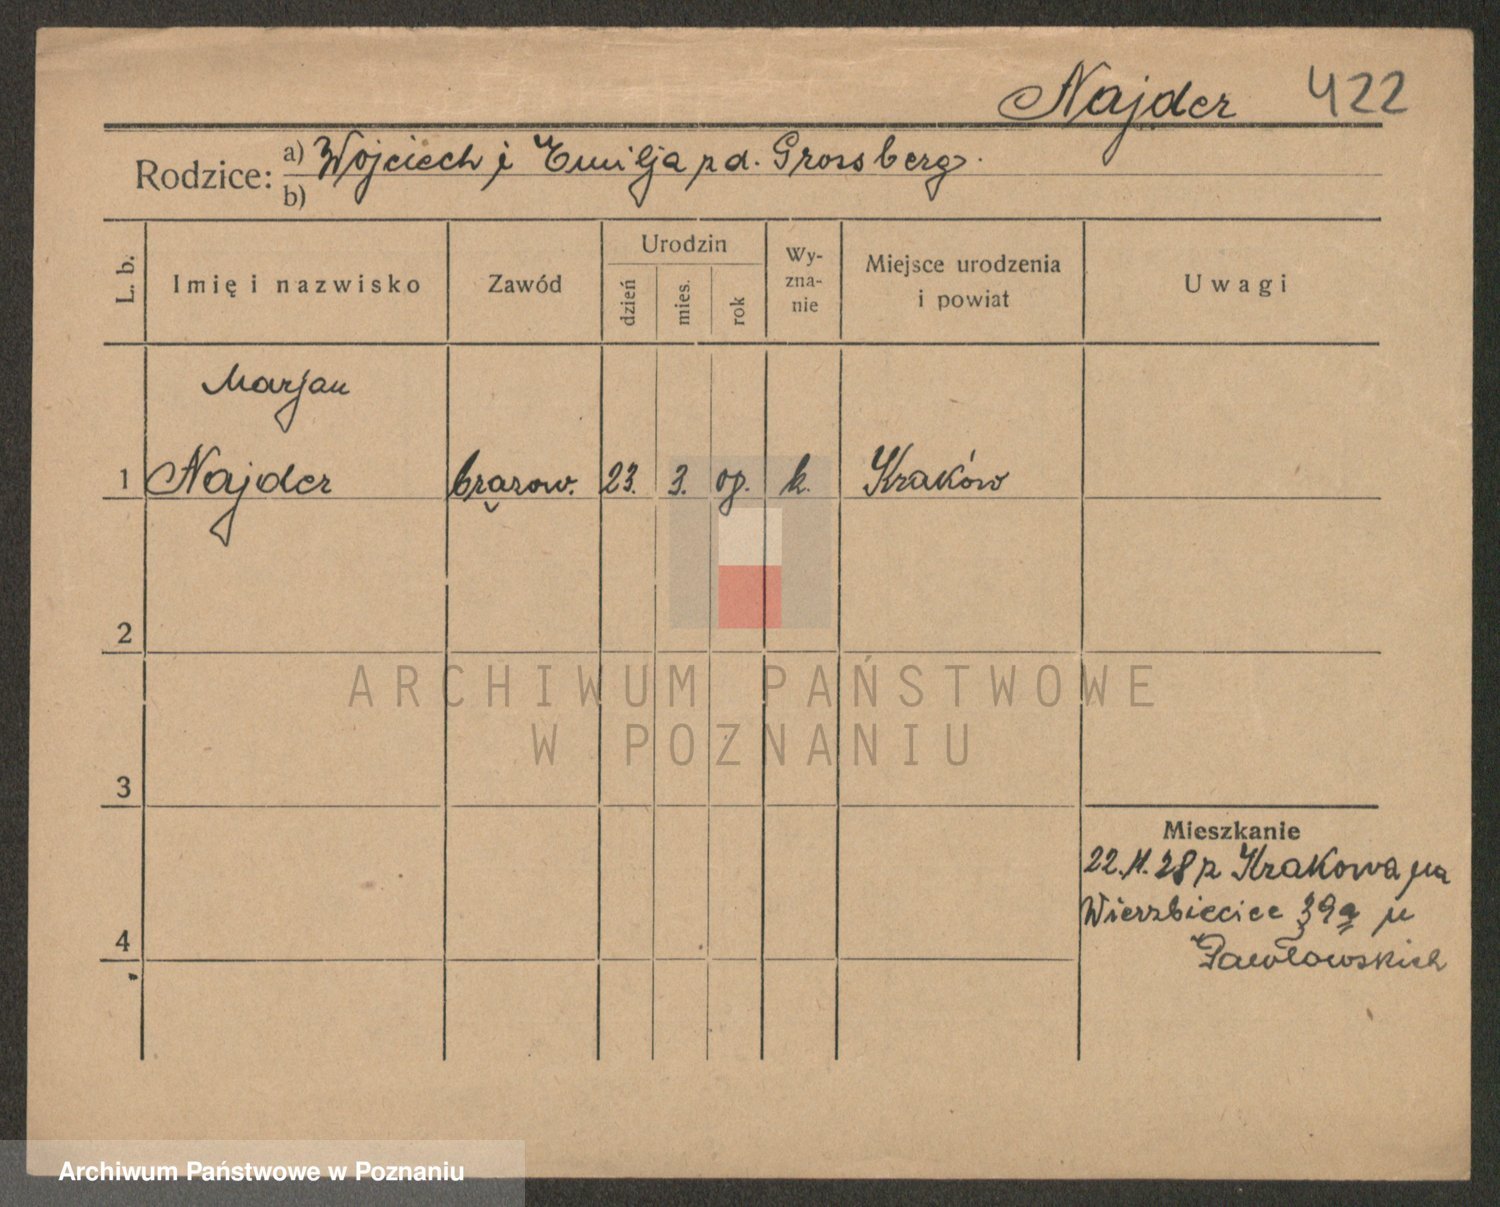 Najder 422
Rodzice: a) Wojciech i Emilja z d. Grossberg.
b)
L. b.
Imię i nazwisko
Zawód
Urodzin
dzień
mies.
rok
Wy-
zna-
nie
Miejsce urodzenia
i powiat
Uwagi
Marjan
1 Najder 23. 3. 09. k. Kraków
2
ARCHIWUM PAŃSTWOWE
W POZNANIU
3
Mieszkanie
22.11.28 z Krakowa na
Wierzbięcice 39a u
4
Pawłowskich
Archiwum Państwowe w Poznaniu